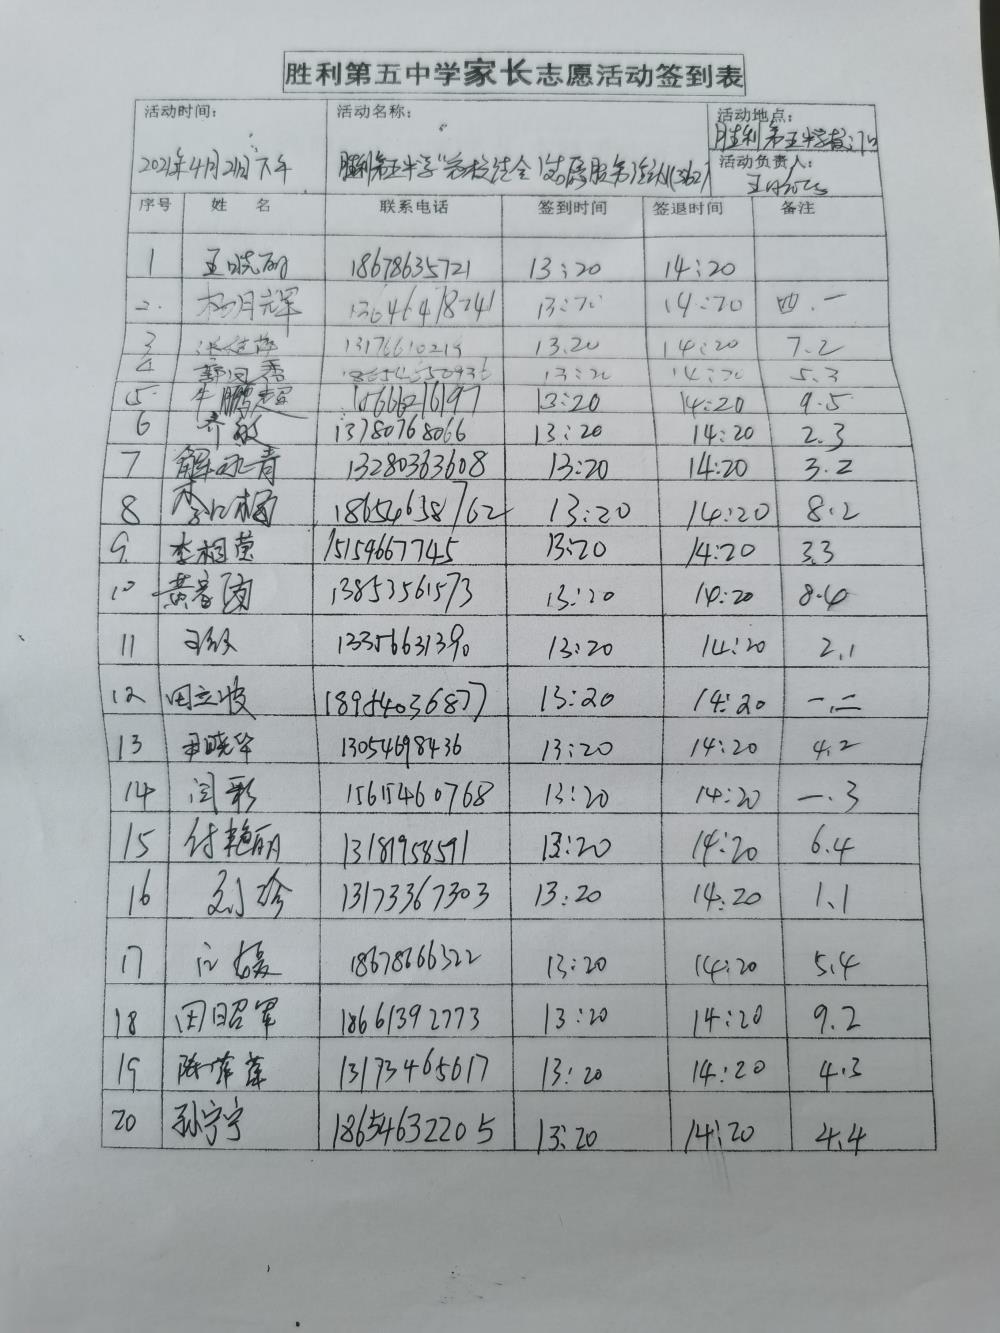 胜利第五中学家长志愿活动签到表
活动时间: 活动名称: 活动地点:
胜利第五中学校门口
2021年4月21日下午 胜利第五中学"家校结合"志愿服务活动
活动负责人:
序号 姓名 联系电话 签到时间 签退时间 备注
1 王晓丽 18678635721 13:20 14:20
2. 杨月辉 13646478241 13:20 14:20 四.一
3 13176610219 13.20 14:20 7.2
4 18654650936 13:20 14:20 5.3
5 牛鹏超 15666216197 13:20 14:20 9.5
6 齐敏 13780768066 13:20 14:20 2.3
7 解咏青 13280363608 13:20 14:20 3.2
8 18654638762 13:20 14:20 8.2
9 李相莹 15154667745 13:20 14:20 3.3
10 13853561573 13:20 14:20 8.4
11 王敏 13356631390 13:20 14:20 2.1
12 田立波 18954036877 13:20 14:20 一.二
13 尹晓华 13054698436 13:20 14:20 4.2
14 闫彩 15615460768 13:20 14:20 一.3
15 付艳丽 13181958591 13:20 14:20 6.4
16 刘珍 13173367303 13:20 14:20 1.1
17 江媛 18678666322 13:20 14:20 5.4
18 田昭军 18661392773 13:20 14:20 9.2
19 陈菲菲 13173465617 13:20 14:20 4.3
20 孙宁宁 18654632205 13:20 14:20 4.4